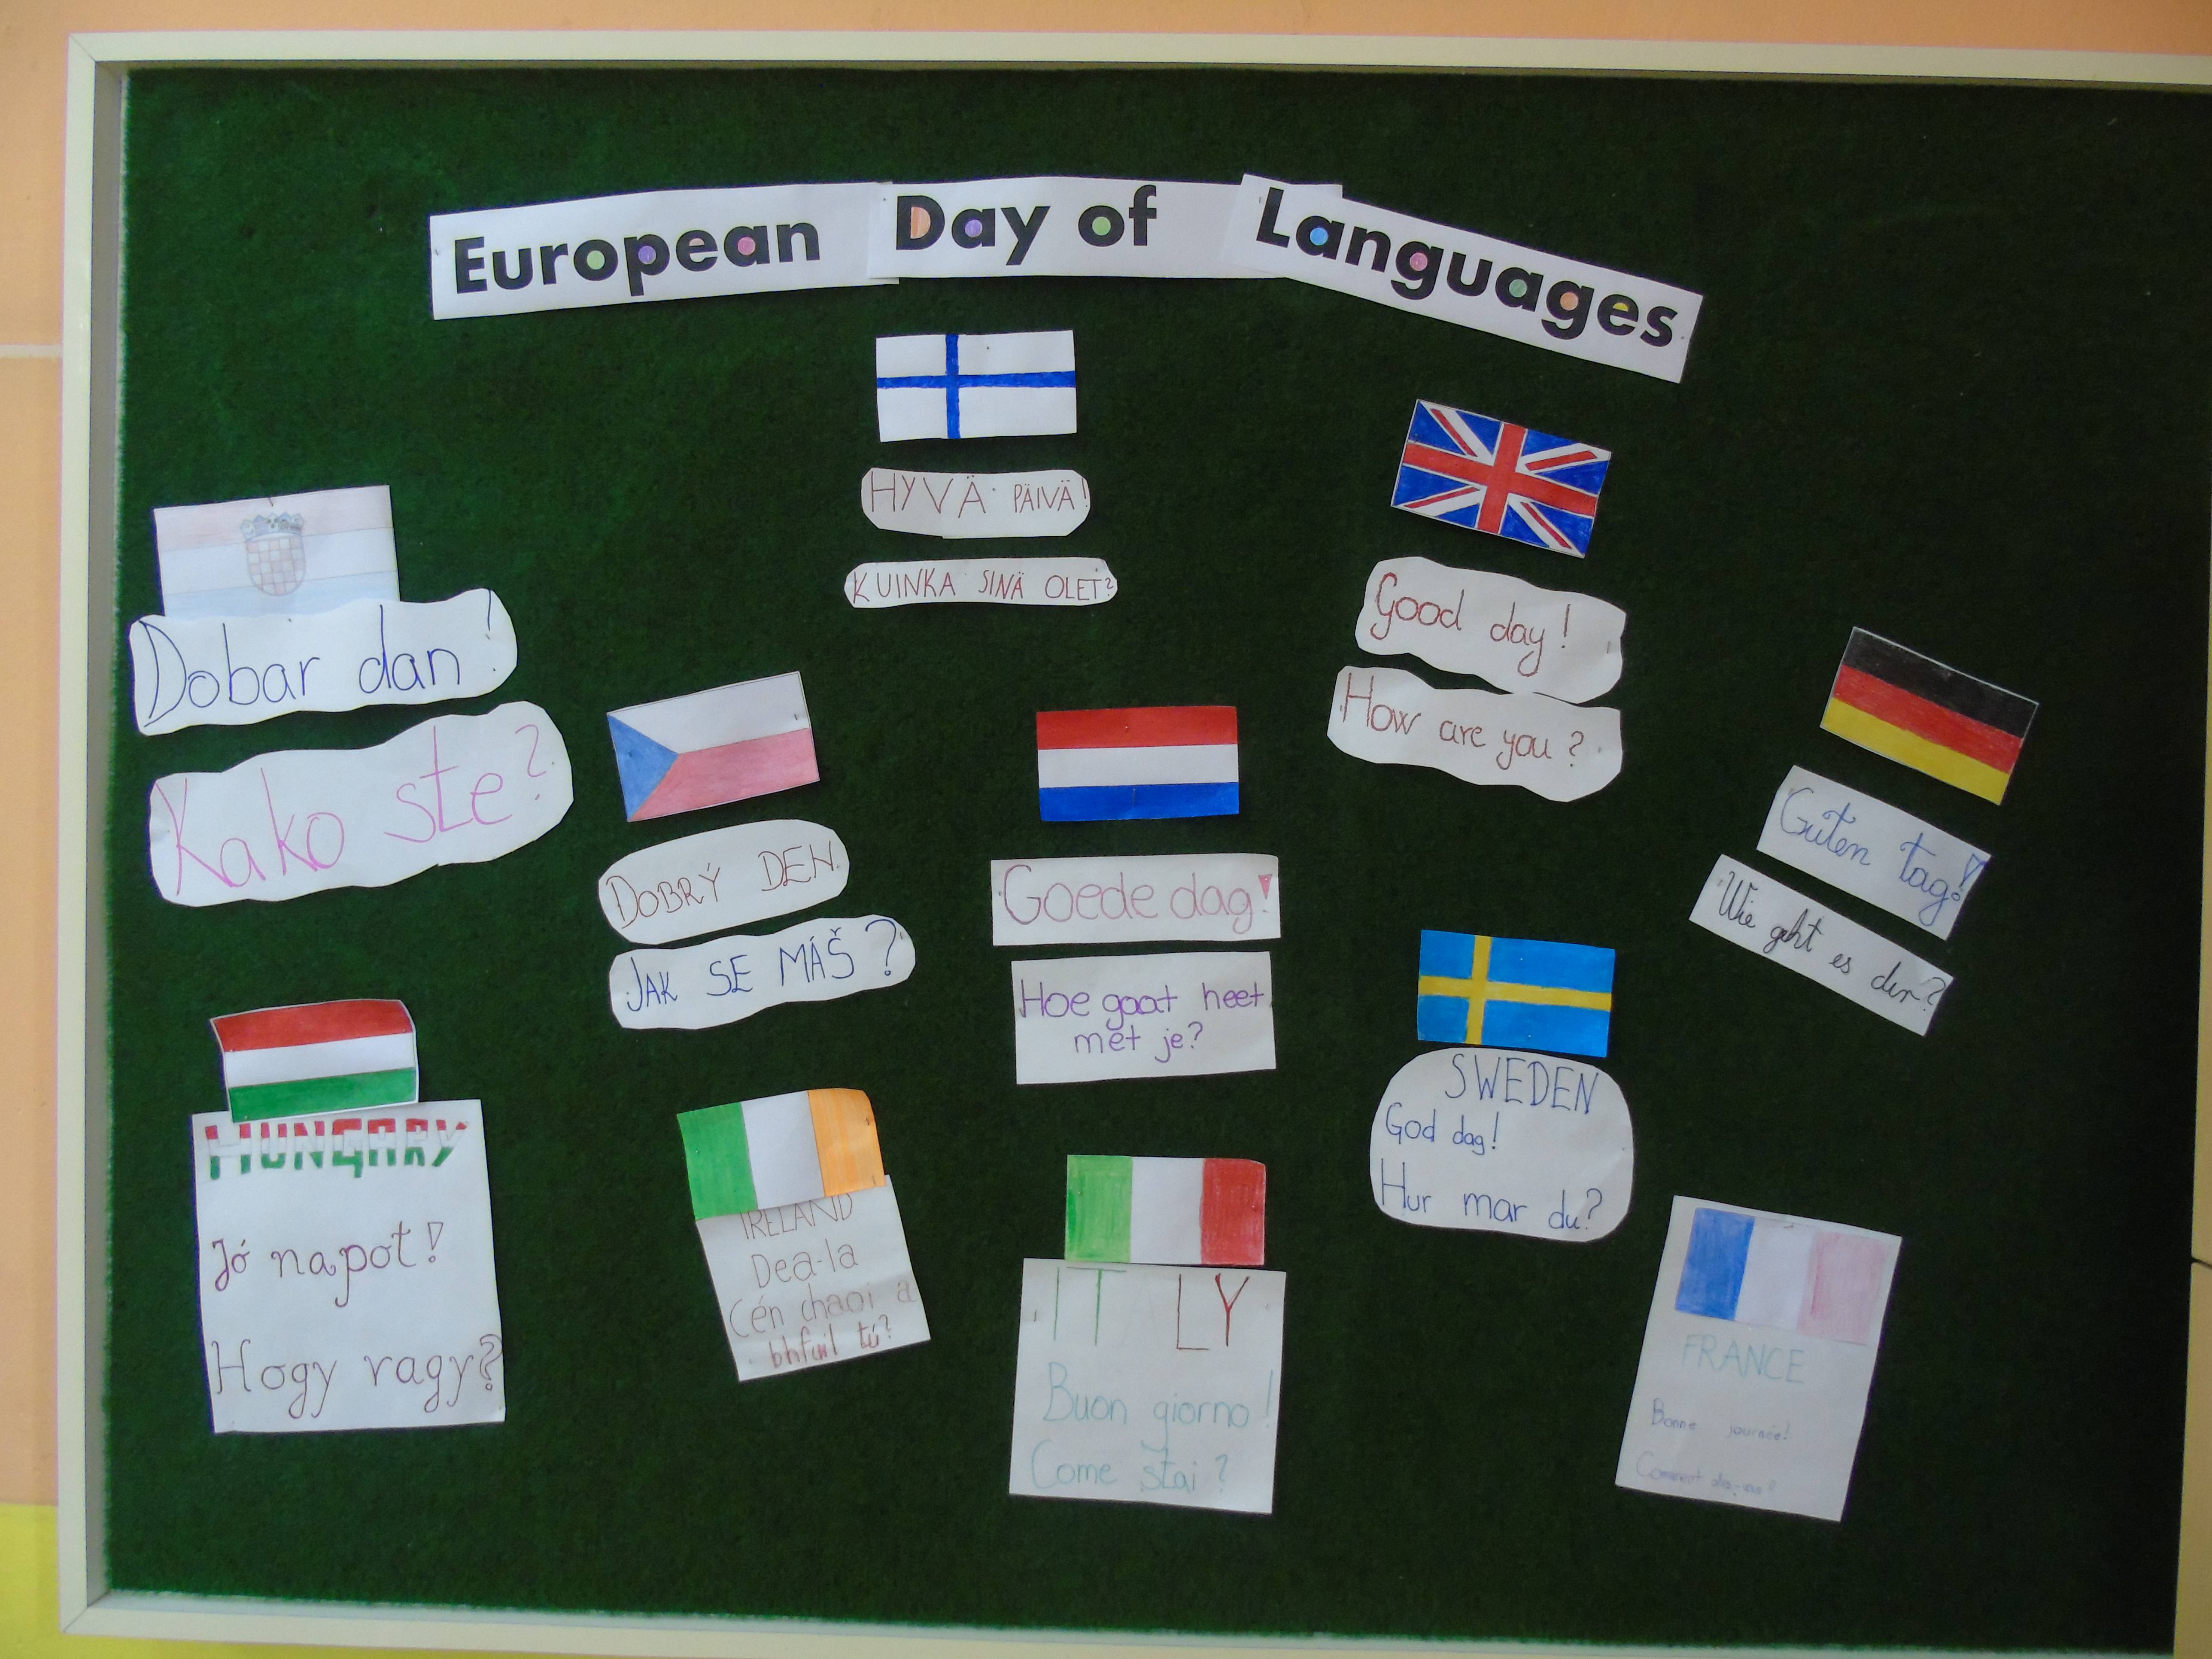 European Day of Languages
HYVÄ PÄIVÄ!
KUINKA SINÄ OLET?
Good day!
How are you?
Dobar dan!
Kako ste?
DOBRÝ DEN
JAK SE MÁŠ?
Goede dag!
Hoe gaat heet
met je?
Guten tag!
Wie geht es dir?
SWEDEN
God dag!
Hur mar du?
HUNGARY
Jó napot!
Hogy vagy?
IRELAND
Dea-la
Cén chaoi a
bhfuil tú?
ITALY
Buon giorno!
Come stai?
FRANCE
Bonne journée!